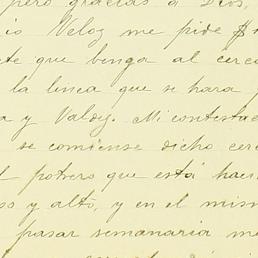 pero gracias a Dios,
io Veloz me pide $
te que benga al cerc
la linea que se hara
a y Valdez. Mi contestac
se comiense dicho cer
l potrero que está haci
so y alto, y en el mism
pasar semanaria me